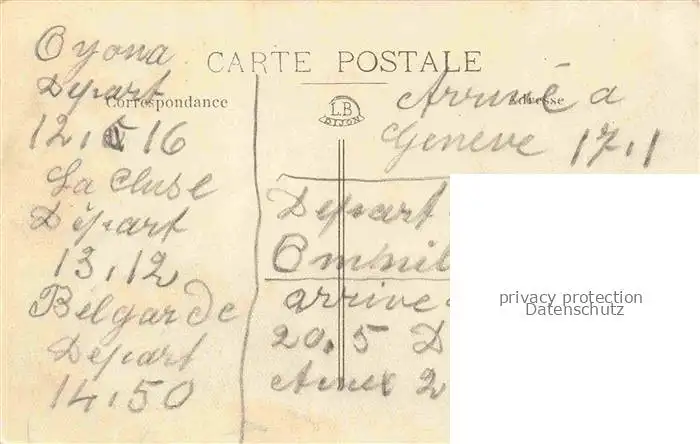 CARTE POSTALE
Correspondance
Adresse
LB
DIJON
Oyona
Départ
12, 16
La Cluse
Départ
13,12
Bélgarde
Départ
14,50
Arrivé a
Genève 17,1
Départ
arrive
20.5 D
2
privacy protection
Datenschutz